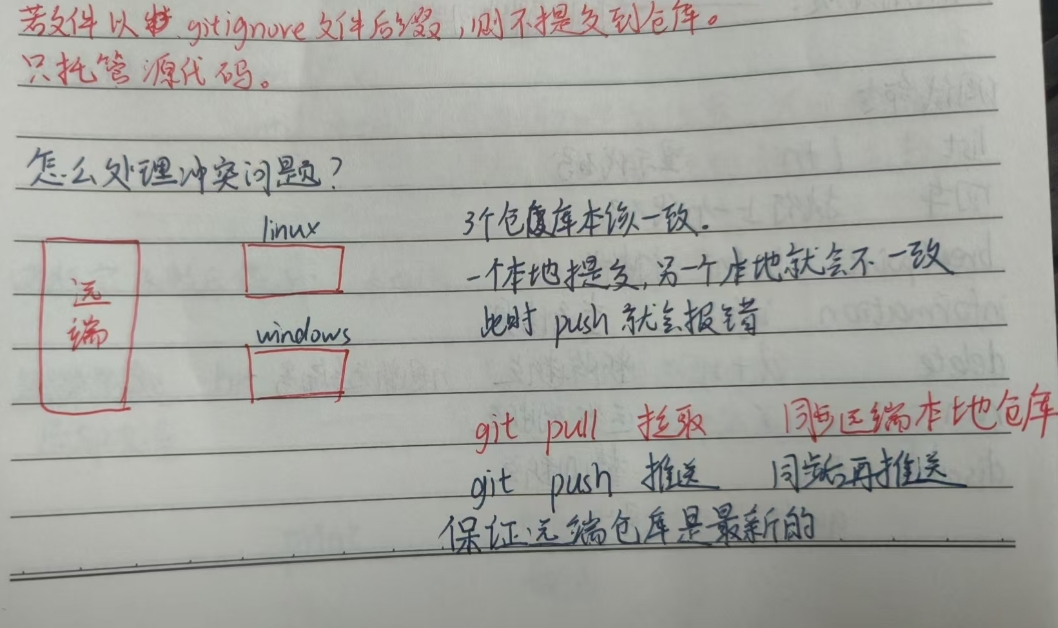 若文件以.gitignore文件后缀,则不提交到仓库。
只托管源代码。
怎么处理冲突问题?
linux
3个仓库本该一致。
一个本地提交,另一个本地就会不一致
远端
此时 push 就会报错
windows
git pull 拉取 同步远端本地仓库
git push 推送 同步后再推送
保证远端仓库是最新的